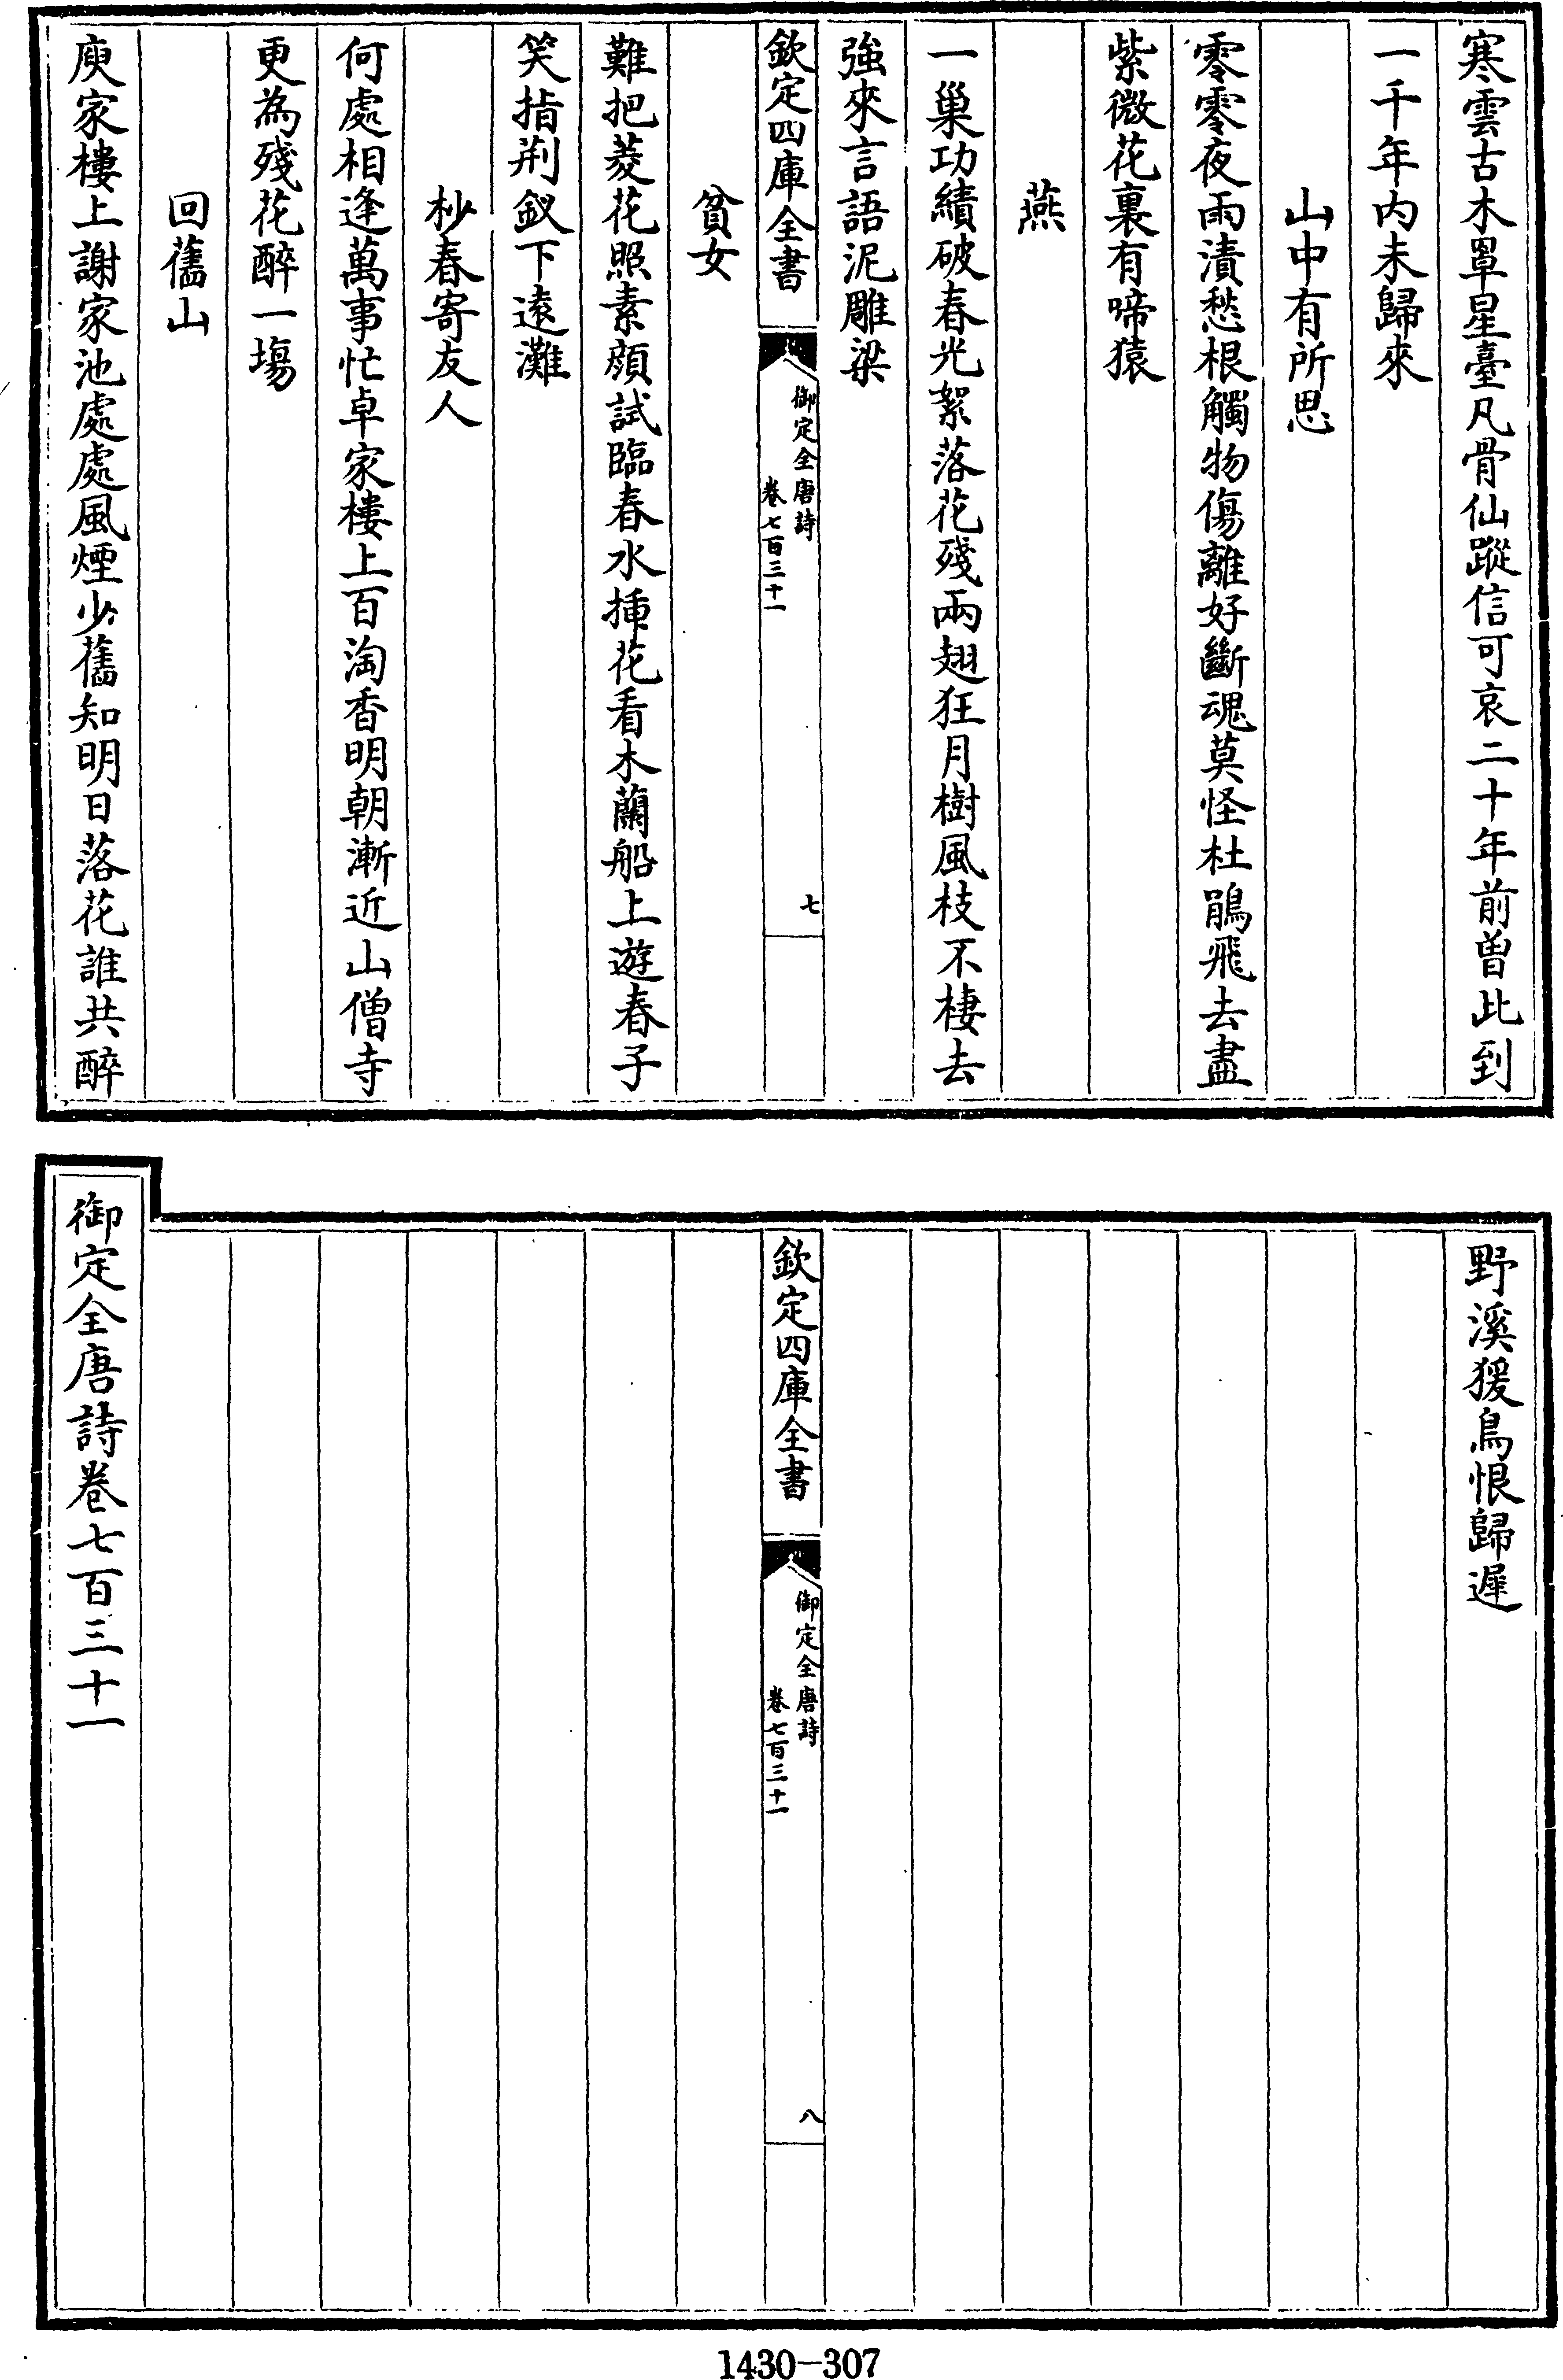 寒雲古木罩星臺凡骨仙蹤信可哀二十年前曾此到
一千年内未歸來
山中有所思
零零夜雨漬愁根觸物傷離好斷魂莫怪杜鵑飛去盡
紫微花裏有啼猿
燕
一巢功績破春光絮落花殘兩翅狂月樹風枝不棲去
強來言語泥雕梁
欽定四庫全書
御定全唐詩
卷七百三十一
七
貧女
難把菱花照素顔試臨春水揷花看木蘭船上遊春子
笑指荆釵下遠灘
杪春寄友人
何處相逢萬事忙卓家樓上百淘香明朝漸近山僧寺
更為殘花醉一塲
回舊山
庾家樓上謝家池處處風煙少舊知明日落花誰共醉
野溪猨鳥恨歸遲
欽定四庫全書
御定全唐詩
卷七百三十一
八
御定全唐詩卷七百三十一
1430-307